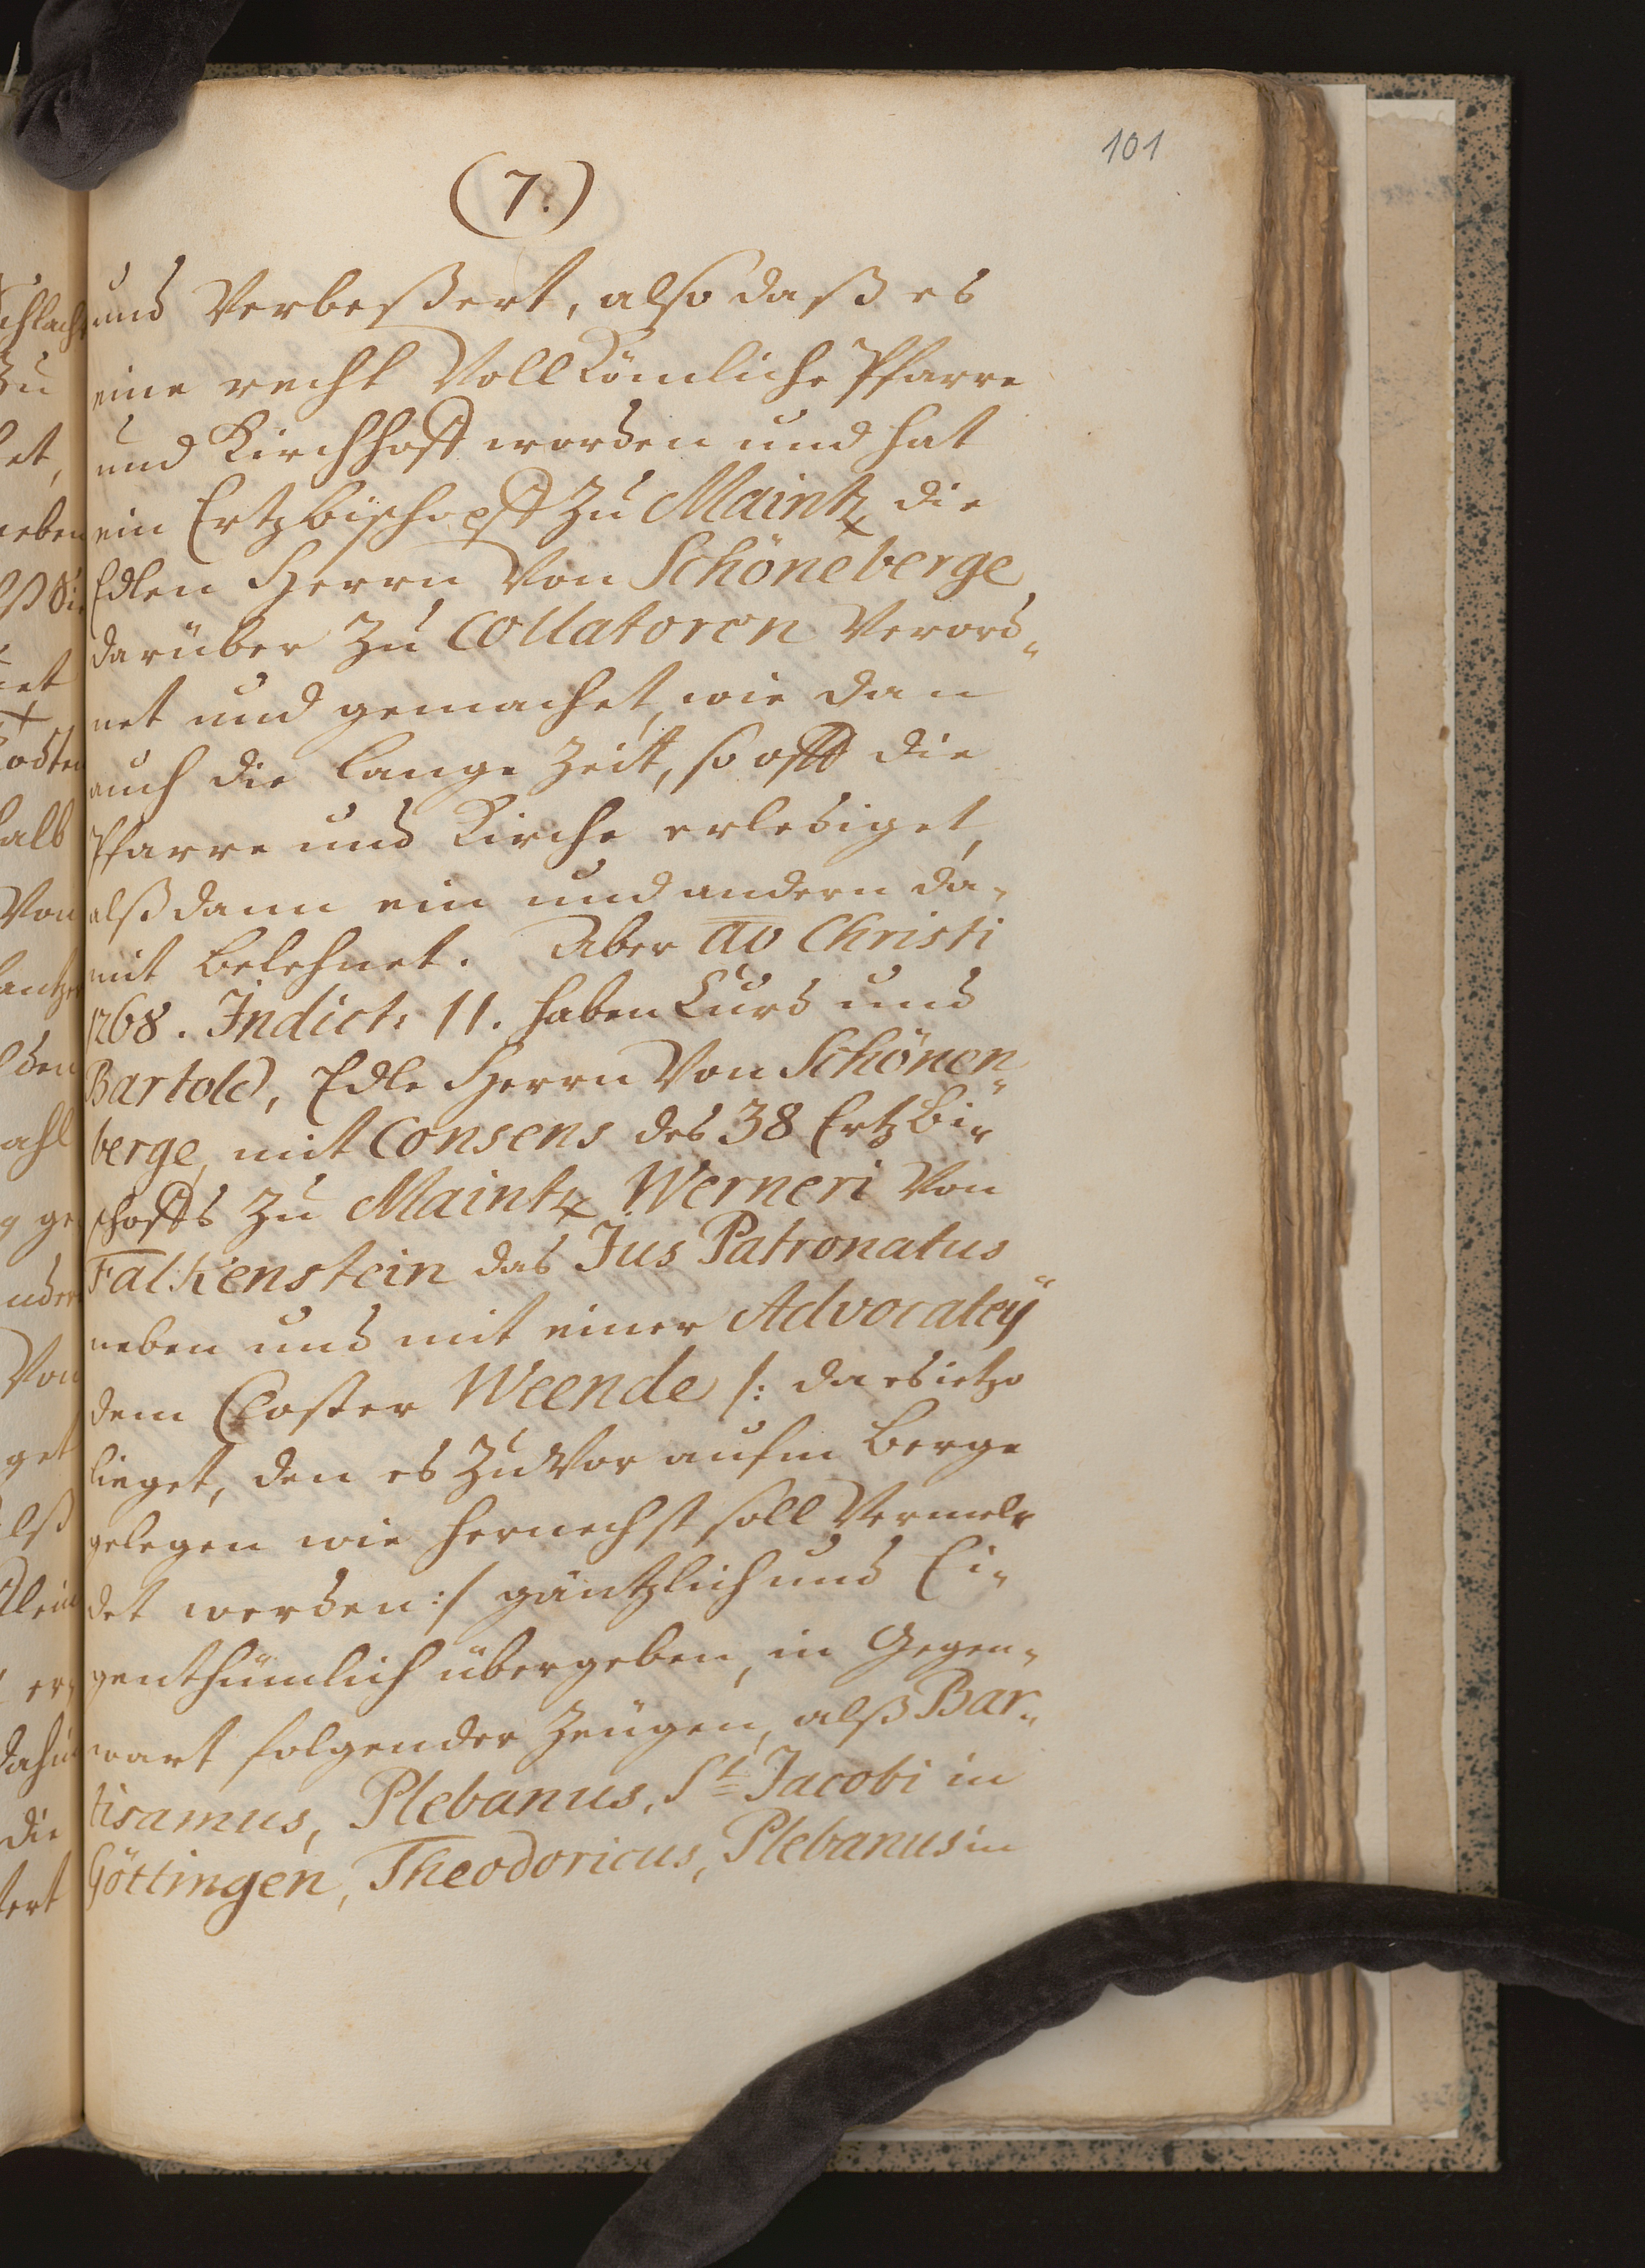 101
(7.)
und Verbeßert, also daß es
eine recht Vollkömliche Pfarre
und Kirchhoff worden und hat
ein Ertzbischopff zu Maintz die
Edlen Herrn Von Schöneberge
darüber zu Collatoren Verord„
net und gemachet, wie dan
auch die lange Zeit, so offt die
Pfarre und Kirche erlediget,
alß dann ein und andern da„
mit belehnet. Aber ao Christi
1268. Indict: 11. haben Curd und
Bartold, Edle Herrn Von Schönen„
berge, mit Consens des 38 Ertzbi„
schoffs zu Maintz Werneri Von
Falkenstein das Jus Patronatus
neben und mit einer Advocateÿ
dem Closter Weende /: da es ietzo
lieget, den es zu Vor aufm Berge
gelegen wie hernechst soll Vermel„
det werden :/ gäntzlich und Ei„
genthümlich übergeben, in Gegen„
wart folgender Zeugen, alß Bar„
tisamus, Plebanus, St Jacobi in
Göttingen, Theodoricus, Plebanus in